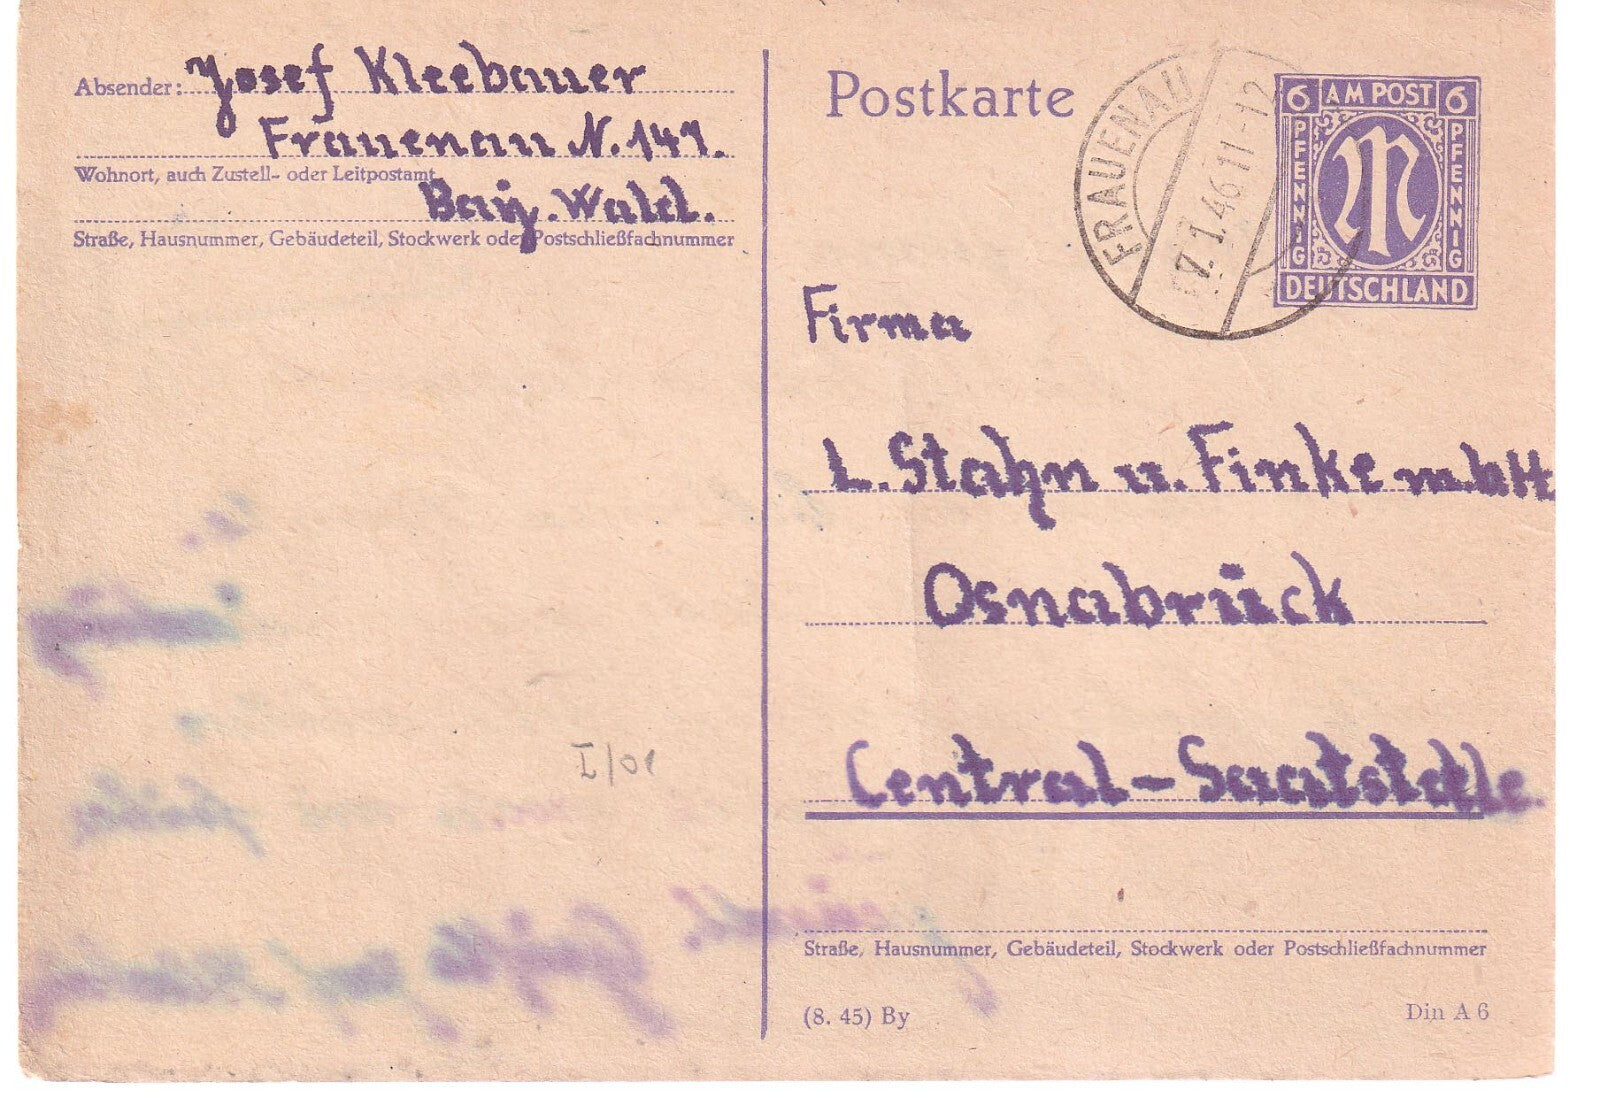 Absender: Josef Kleebauer
Frauenau N. 147.
Wohnort, auch Zustell- oder Leitpostamt
Bay. Wald.
Straße, Hausnummer, Gebäudeteil, Stockwerk oder Postschließfachnummer
Postkarte
FRAUENAU
7.1.46 11-12
6 AM POST 6
PFENNIG
PFENNIG
DEUTSCHLAND
Firma
L. Stahn u. Finke m.b.H.
Osnabrück
Central-Saatstelle.
Straße, Hausnummer, Gebäudeteil, Stockwerk oder Postschließfachnummer
(8. 45) By
Din A 6
I/01